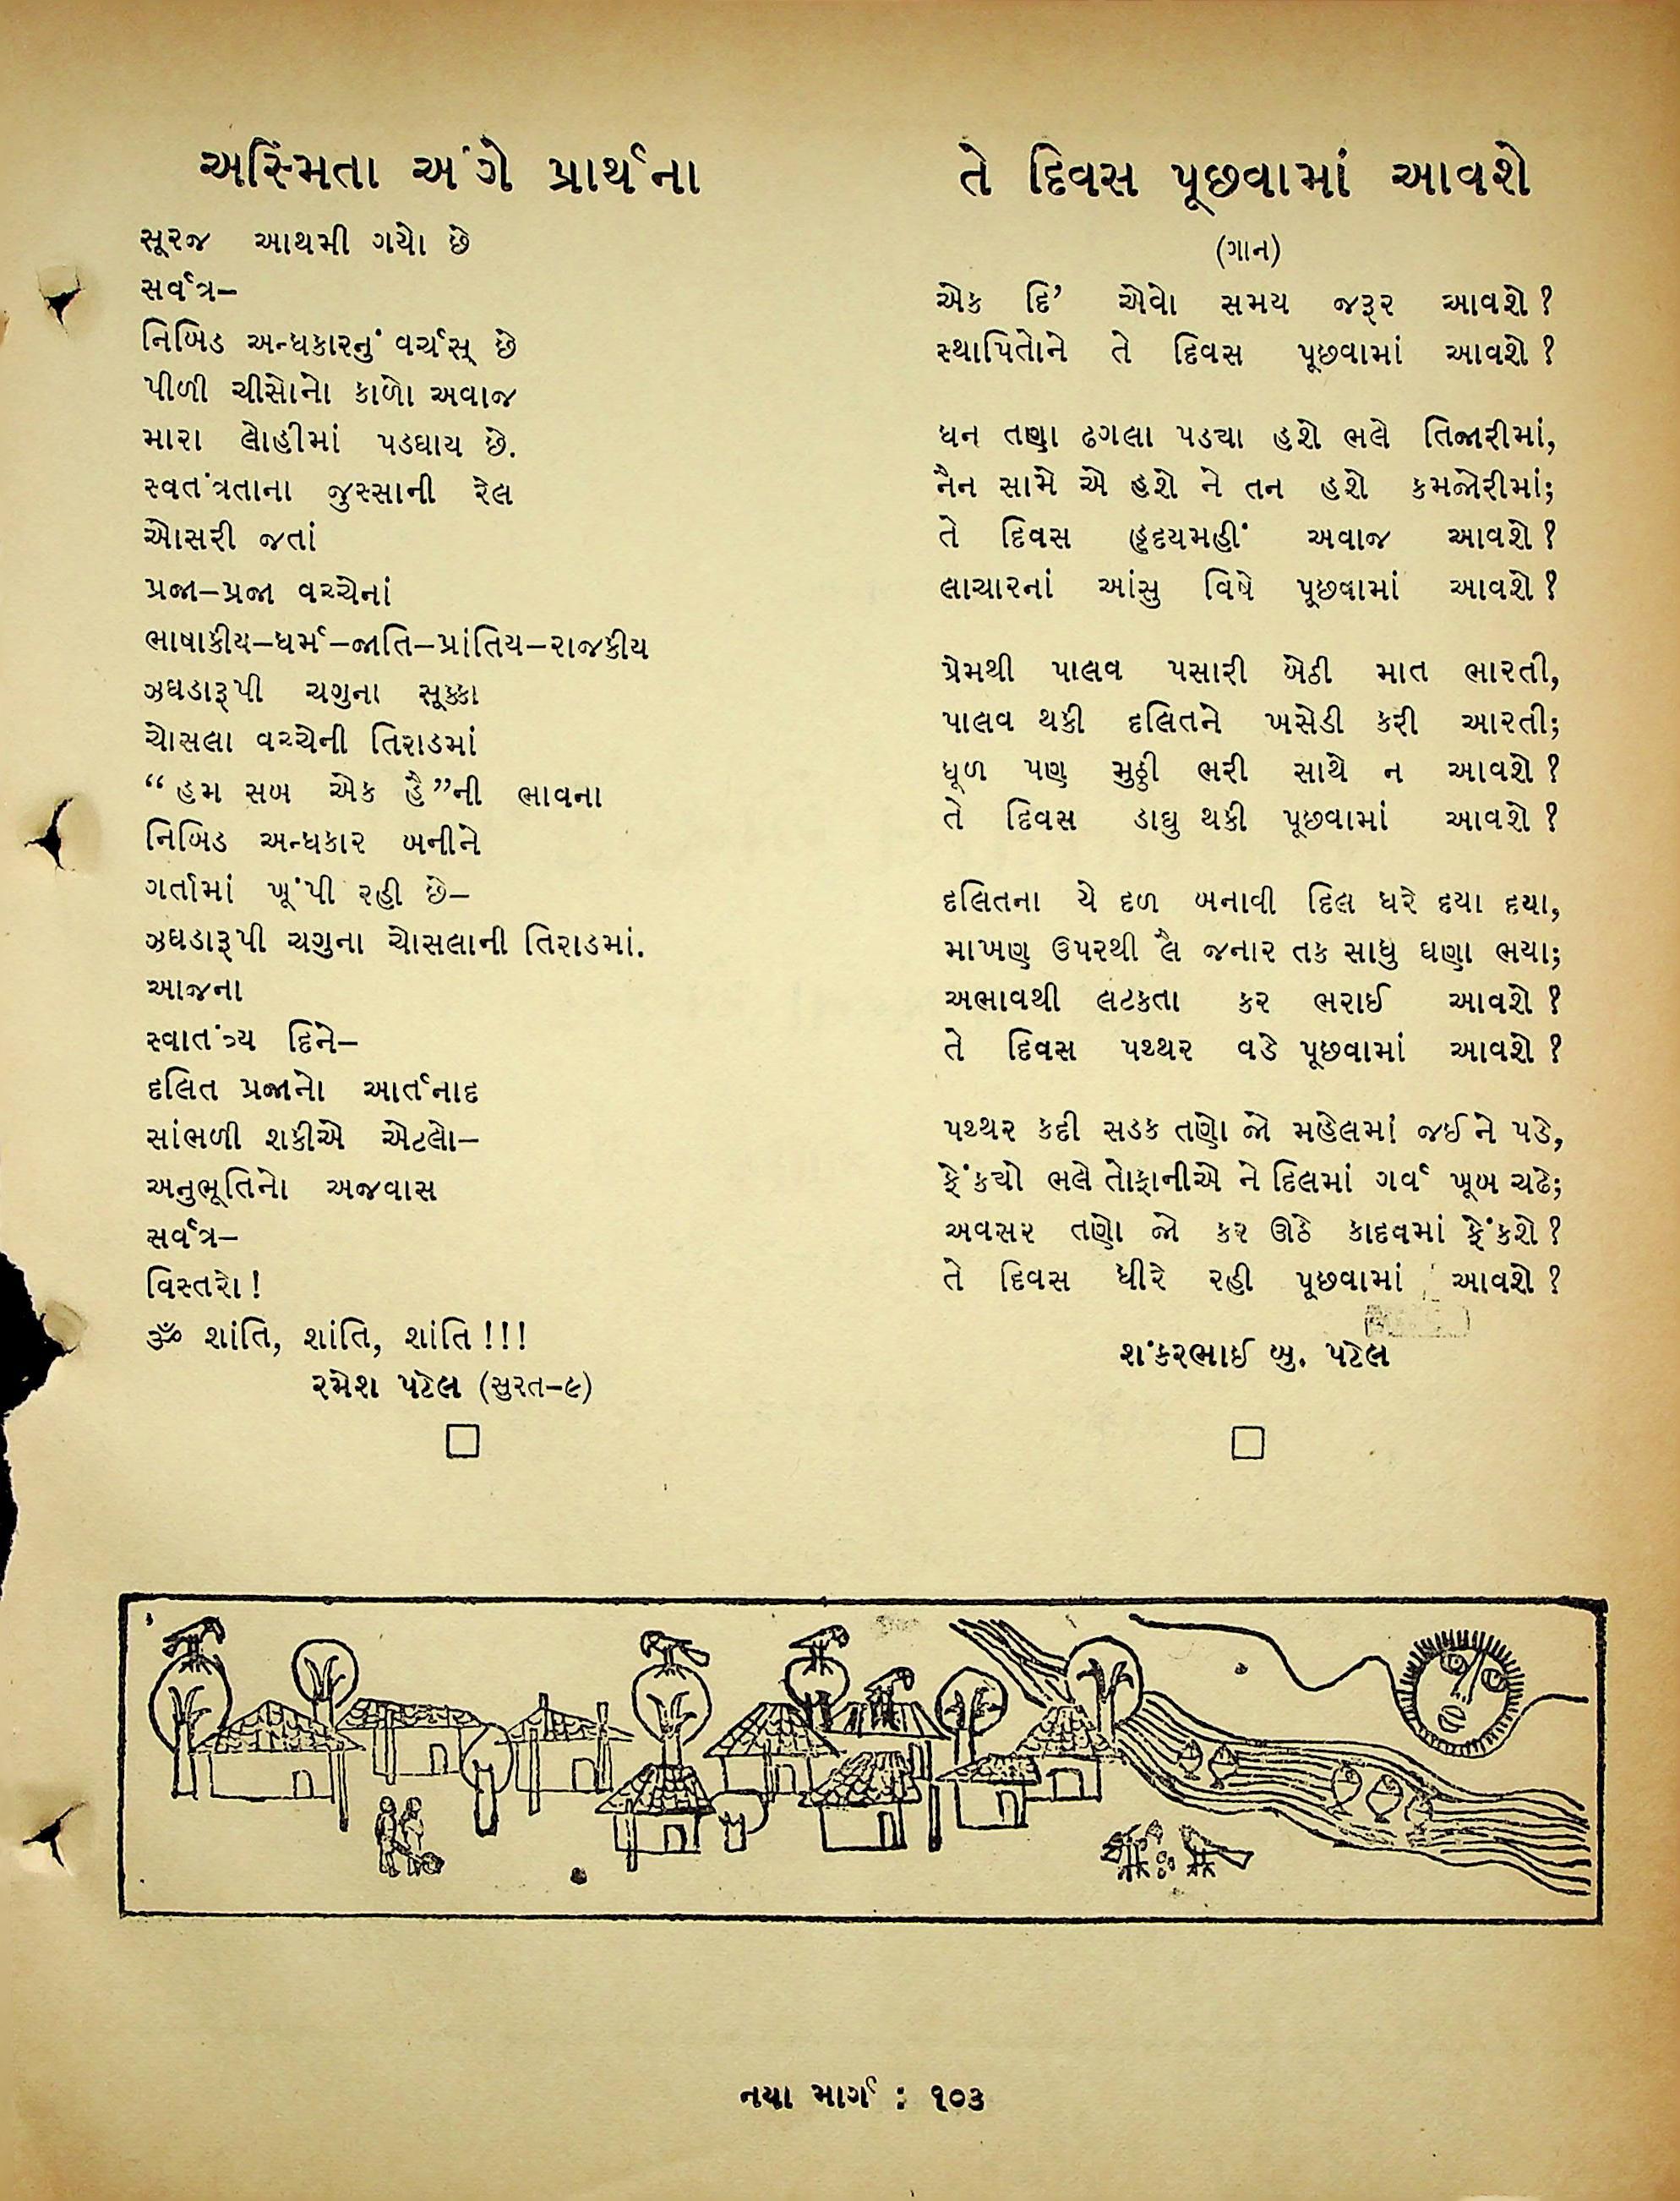 અસ્મિતા અંગે પ્રાર્થના
સૂરજ આથમી ગયો છે
સર્વત્ર–
નિબિડ અન્ધકારનું વર્ચસ્ છે
પીળી ચીસોનો કાળો અવાજ
મારા લોહીમાં પડઘાય છે.
સ્વતંત્રતાના જુસ્સાની રેલ
ઓસરી જતાં
પ્રજા–પ્રજા વચ્ચેનાં
ભાષાકીય–ધર્મ–જાતિ–પ્રાંતિય–રાજકીય
ઝઘડારૂપી ચગુના સૂક્કા
ચોસલા વચ્ચેની તિરાડમાં
“હમ સબ એક હૈ”ની ભાવના
નિબિડ અન્ધકાર બનીને
ગર્તામાં ખૂંપી રહી છે–
ઝઘડારૂપી ચગુના ચોસલાની તિરાડમાં.
આજના
સ્વાતંત્ર્ય દિને–
દલિત પ્રજાનો આર્તનાદ
સાંભળી શકીએ એટલો–
અનુભૂતિનો અજવાસ
સર્વત્ર–
વિસ્તરો!
ૐ શાંતિ, શાંતિ, શાંતિ!!!
રમેશ પટેલ (સુરત–૯)
તે દિવસ પૂછવામાં આવશે
(ગાન)
એક દિ’ એવો સમય જરૂર આવશે?
સ્થાપિતોને તે દિવસ પૂછવામાં આવશે?
ધન તણા ઢગલા પડ્યા હશે ભલે તિજારીમાં,
નૈન સામે એ હશે ને તન હશે કમજોરીમાં;
તે દિવસ હૃદયમહીં અવાજ આવશે?
લાચારનાં આંસુ વિષે પૂછવામાં આવશે?
પ્રેમથી પાલવ પસારી બેઠી માત ભારતી,
પાલવ થકી દલિતને ખસેડી કરી આરતી;
ધૂળ પણ મુઠ્ઠી ભરી સાથે ન આવશે?
તે દિવસ ડાઘુ થકી પૂછવામાં આવશે?
દલિતના યે દળ બનાવી દિલ ધરે દયા દયા,
માખણ ઉપરથી લૈ જનાર તક સાધુ ઘણા ભયા;
અભાવથી લટકતા કર ભરાઈ આવશે?
તે દિવસ પથ્થર વડે પૂછવામાં આવશે?
પથ્થર કદી સડક તણો જો મહેલમાં જઈને પડે,
ફેંક્યો ભલે તોફાનીએ ને દિલમાં ગર્વ ખૂબ ચઢે;
અવસર તણો જો કર ઊઠે કાદવમાં ફેંકશે?
તે દિવસ ધીરે રહી પૂછવામાં આવશે?
શંકરભાઈ બુ. પટેલ
નયા માર્ગ : ૧૦૩